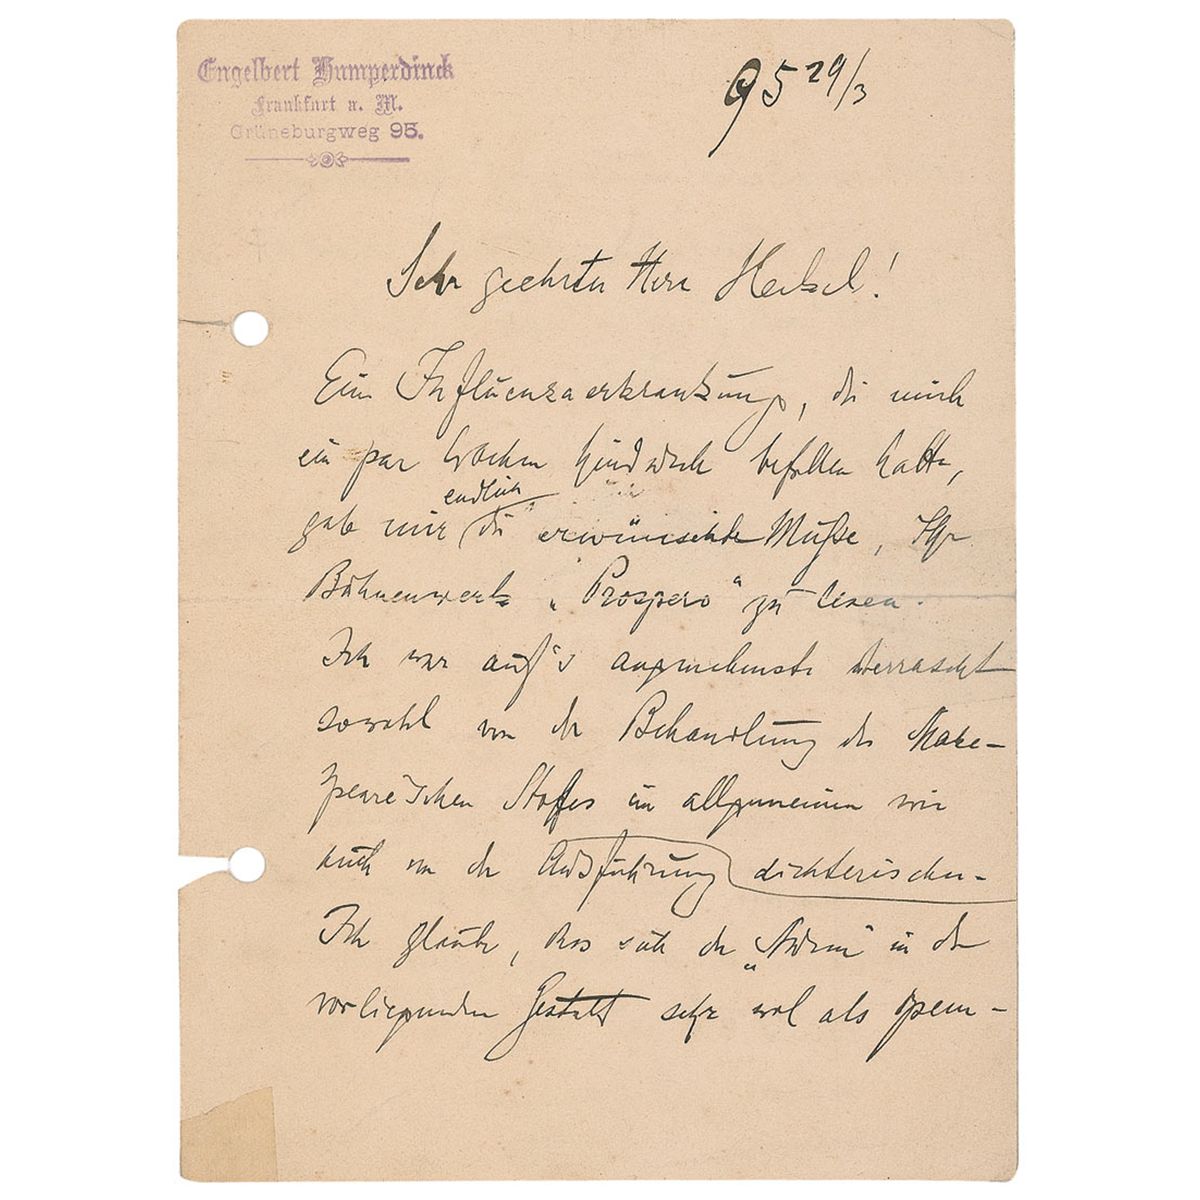 Engelbert Humperdinck
Frankfurt a. M.
Grüneburgweg 95.
95 29/3
Sehr geehrter Herr
Eine Influenzaerkrankung, die mich
ein par Wochen hindurch befallen hatte,
endlich
gab mir die erwünschte Muße, Ihr
Bühnenwerk „Prospero“ zu lesen.
Ich war auf's angenehmste überrascht
sowohl von der Behandlung des Shake-
speare'schen Stoffes im allgemeinen wie
auch von der Ausführung dichterischen-
Ich glaube, dass sich der in der
vorliegenden Gestalt sehr wol als Opern-